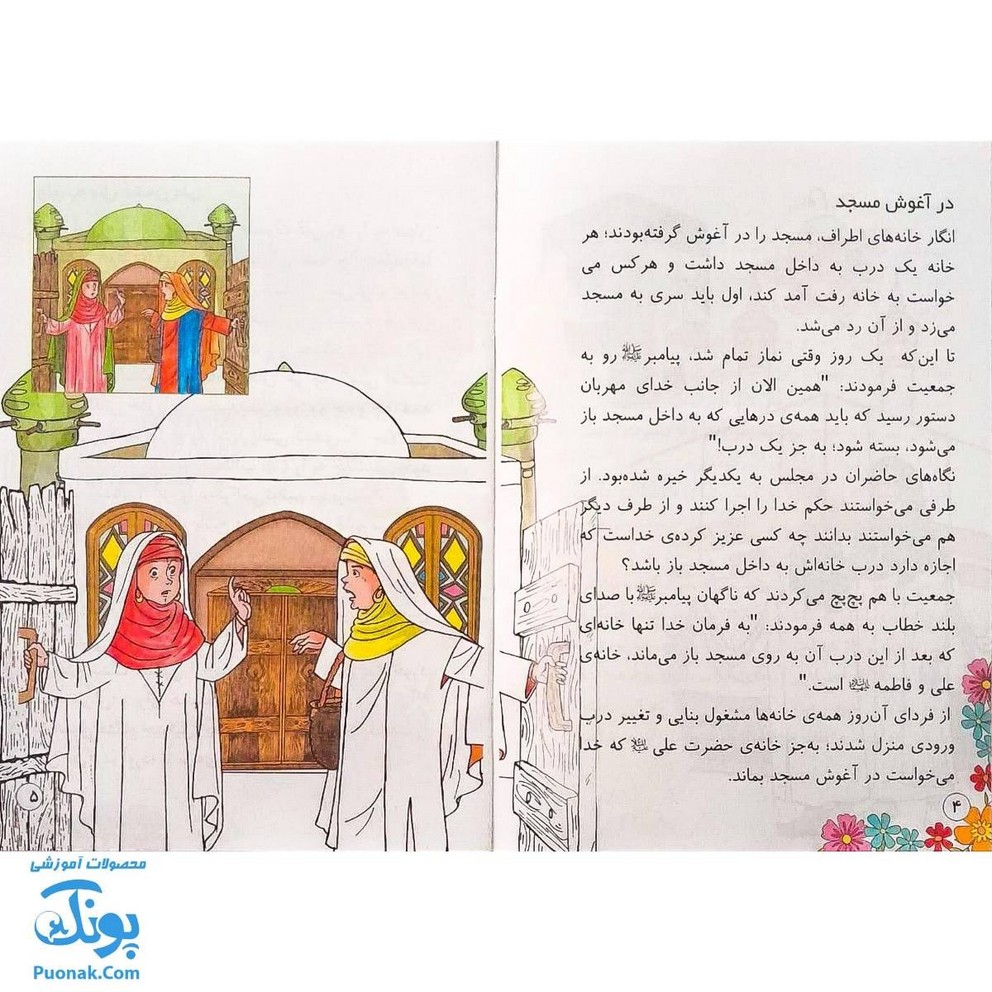 در آغوش مسجد
انگار خانه‌های اطراف، مسجد را در آغوش گرفته‌بودند؛ هر
خانه یک درب به داخل مسجد داشت و هرکس می
خواست به خانه رفت آمد کند، اول باید سری به مسجد
می‌زد و از آن رد می‌شد.
تا این‌که یک روز وقتی نماز تمام شد، پیامبرﷺ رو به
جمعیت فرمودند: "همین الان از جانب خدای مهربان
دستور رسید که باید همه‌ی درهایی که به داخل مسجد باز
می‌شود، بسته شود؛ به جز یک درب!"
نگاه‌های حاضران در مجلس به یکدیگر خیره شده‌بود. از
طرفی می‌خواستند حکم خدا را اجرا کنند و از طرف دیگر
هم می‌خواستند بدانند چه کسی عزیز کرده‌ی خداست که
اجازه دارد درب خانه‌اش به داخل مسجد باز باشد؟
جمعیت با هم پچ‌پچ می‌کردند که ناگهان پیامبرﷺ با صدای
بلند خطاب به همه فرمودند: "به فرمان خدا تنها خانه‌ای
که بعد از این درب آن به روی مسجد باز می‌ماند، خانه‌ی
علی و فاطمه است."
از فردای آن‌روز همه‌ی خانه‌ها مشغول بنایی و تغییر درب
ورودی منزل شدند؛ به‌جز خانه‌ی حضرت علی که خدا
می‌خواست در آغوش مسجد بماند.
۴
۵
محصولات آموزشی
پونک
Puonak.Com